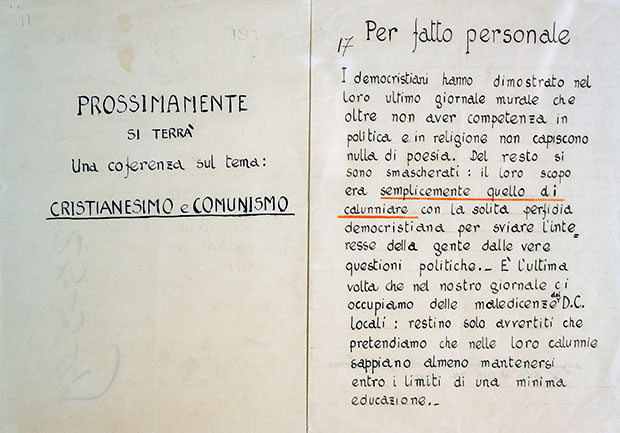 11
PROSSIMAMENTE
SI TERRÀ
Una coferenza sul tema:
CRISTIANESIMO e COMUNISMO
17
Per fatto personale
I democristiani hanno dimostrato nel
loro ultimo giornale murale che
oltre non aver competenza in
politica e in religione non capiscono
nulla di poesia. Del resto si
sono smascherati: il loro scopo
era semplicemente quello di
calunniare con la solita perfidia
democristiana per sviare l'inte=
resse della gente dalle vere
questioni politiche._ È l'ultima
volta che nel nostro giornale ci
occupiamo delle maledicenze dei D.C.
locali: restino solo avvertiti che
pretendiamo che nelle loro calunnie
sappiano almeno mantenersi
entro i limiti di una minima
educazione._